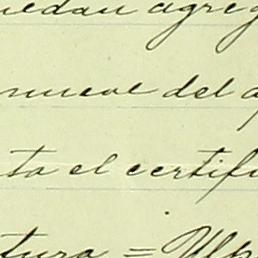 uedan agreg
nueve del a
ta el certifi
tura = Ulp